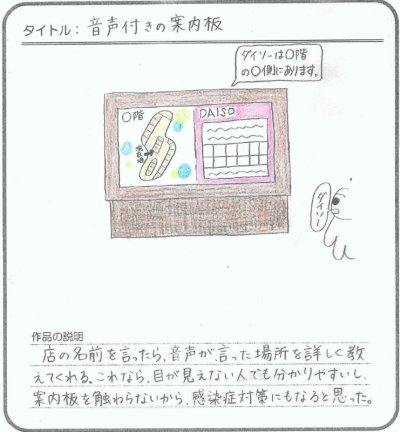 タイトル: 音声付きの案内板
ダイソーは〇階
の〇側にあります。
〇階
現在地
DAISO
ダイソー
作品の説明
店の名前を言ったら、音声が、言った場所を詳しく教
えてくれる。これなら、目が見えない人でも分かりやすいし、
案内板を触わらないから、感染症対策にもなると思った。